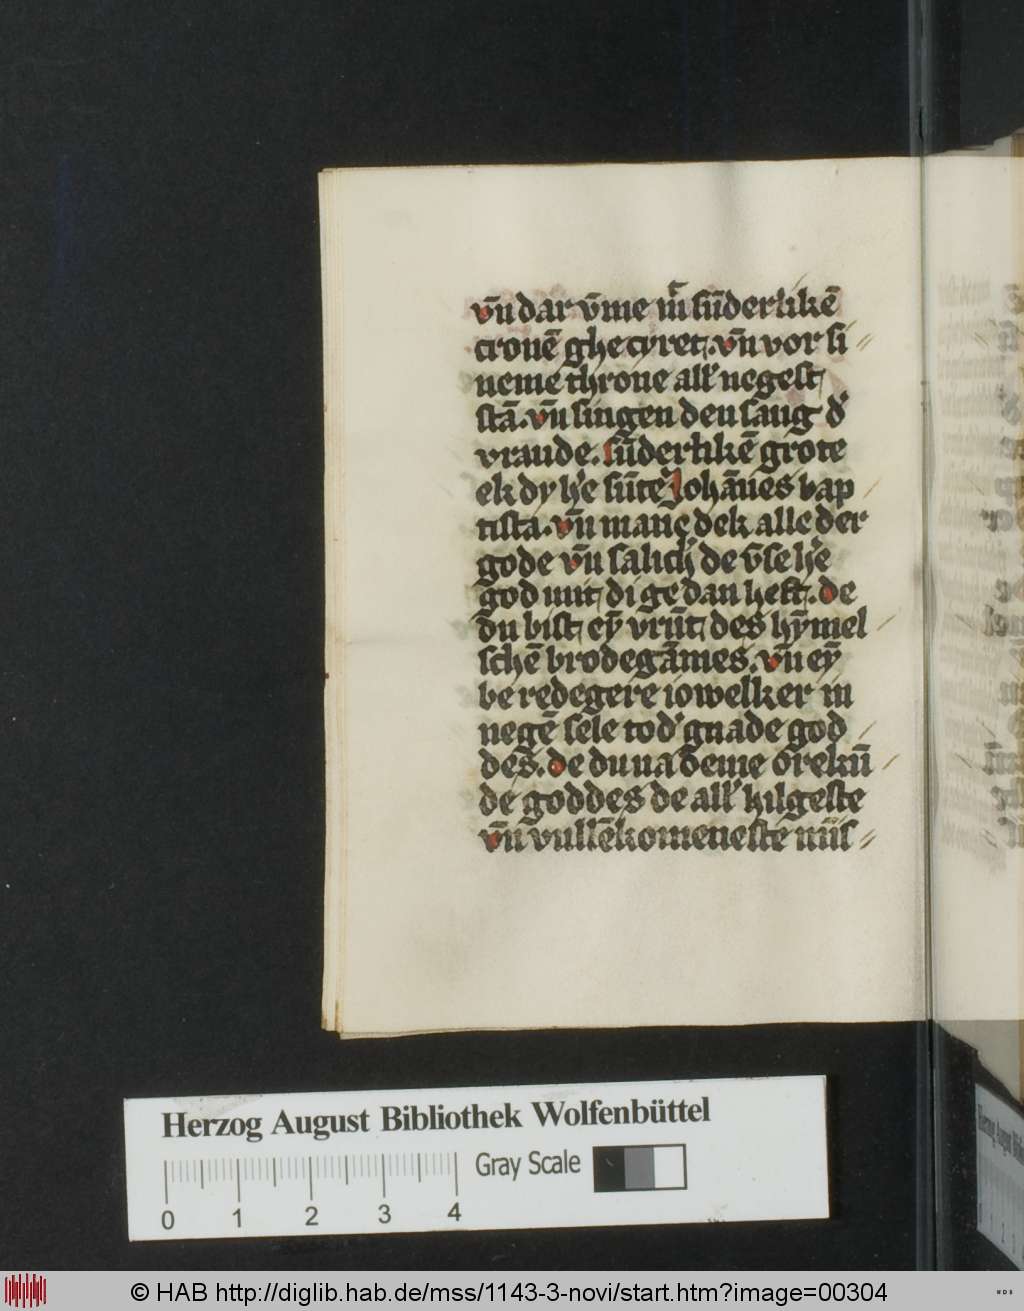 vn̄ dar v̄me m̄ sūderlikē
cronē ghecyret. vn̄ vor si⸗
neme throne all' negest
stā. vn̄ singen den sang d'
vraude. sūderlikē grote
ek dy h'e sūte Johānes bap⸗
tista. vn̄ mane dek alle der
gode vn̄ salich' de v̄se h'e
god mit di gedan heft. de
du bist eȳ vrūt des hȳmel⸗
schē brodegāmes. vn̄ eȳ
beredegere iowelker in
negē sele to d' gnade god⸗
des. de du na deme orekū⸗
de goddes de all' hilgeste
vn̄ vullēkomeneste mīs⸗
Herzog August Bibliothek Wolfenbüttel
Gray Scale
0 1 2 3 4
© HAB http://diglib.hab.de/mss/1143-3-novi/start.htm?image=00304